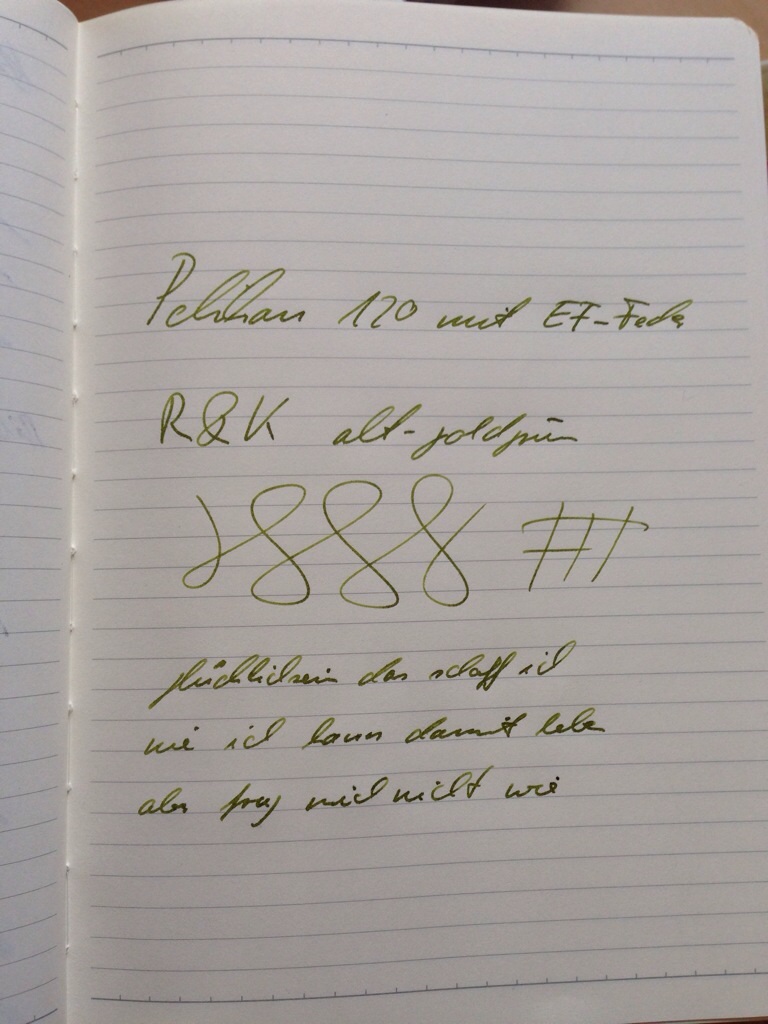 Pelikan 120 mit EF-Feder
R&K alt-goldgrün
glücklichsein das schaff ich
nie ich kann damit leben
aber frag mich nicht wie